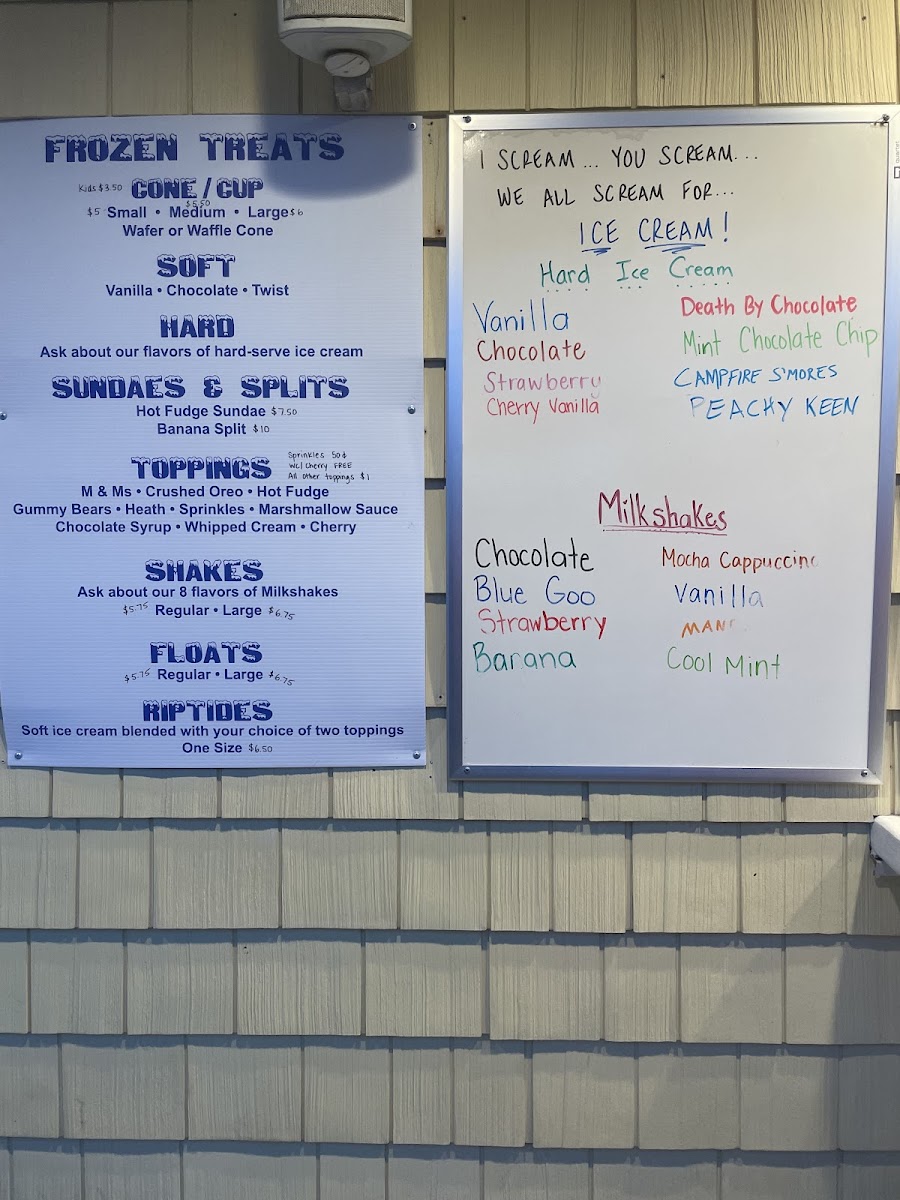 FROZEN TREATS
Kids $3.50 CONE / CUP
$5.50
$5 Small • Medium • Large $6
Wafer or Waffle Cone
SOFT
Vanilla • Chocolate • Twist
HARD
Ask about our flavors of hard-serve ice cream
SUNDAES & SPLITS
Hot Fudge Sundae $7.50
Banana Split $10
TOPPINGS
Sprinkles 50¢
WC/ Cherry FREE
All other toppings $1
M & Ms • Crushed Oreo • Hot Fudge
Gummy Bears • Heath • Sprinkles • Marshmallow Sauce
Chocolate Syrup • Whipped Cream • Cherry
SHAKES
Ask about our 8 flavors of Milkshakes
$5.75 Regular • Large $6.75
FLOATS
$5.75 Regular • Large $6.75
RIPTIDES
Soft ice cream blended with your choice of two toppings
One Size $6.50
I SCREAM... YOU SCREAM...
WE ALL SCREAM FOR...
ICE CREAM!
Hard Ice Cream
Vanilla
Chocolate
Strawberry
Cherry Vanilla
Death By Chocolate
Mint Chocolate Chip
CAMPFIRE S'MORES
PEACHY KEEN
Milkshakes
Chocolate
Blue Goo
Strawberry
Banana
Mocha Cappuccino
Vanilla
Cool Mint